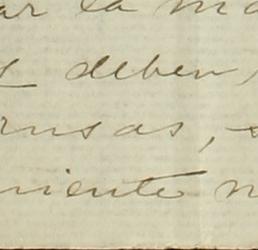 ar la m
deben,
rnsas,
niente n